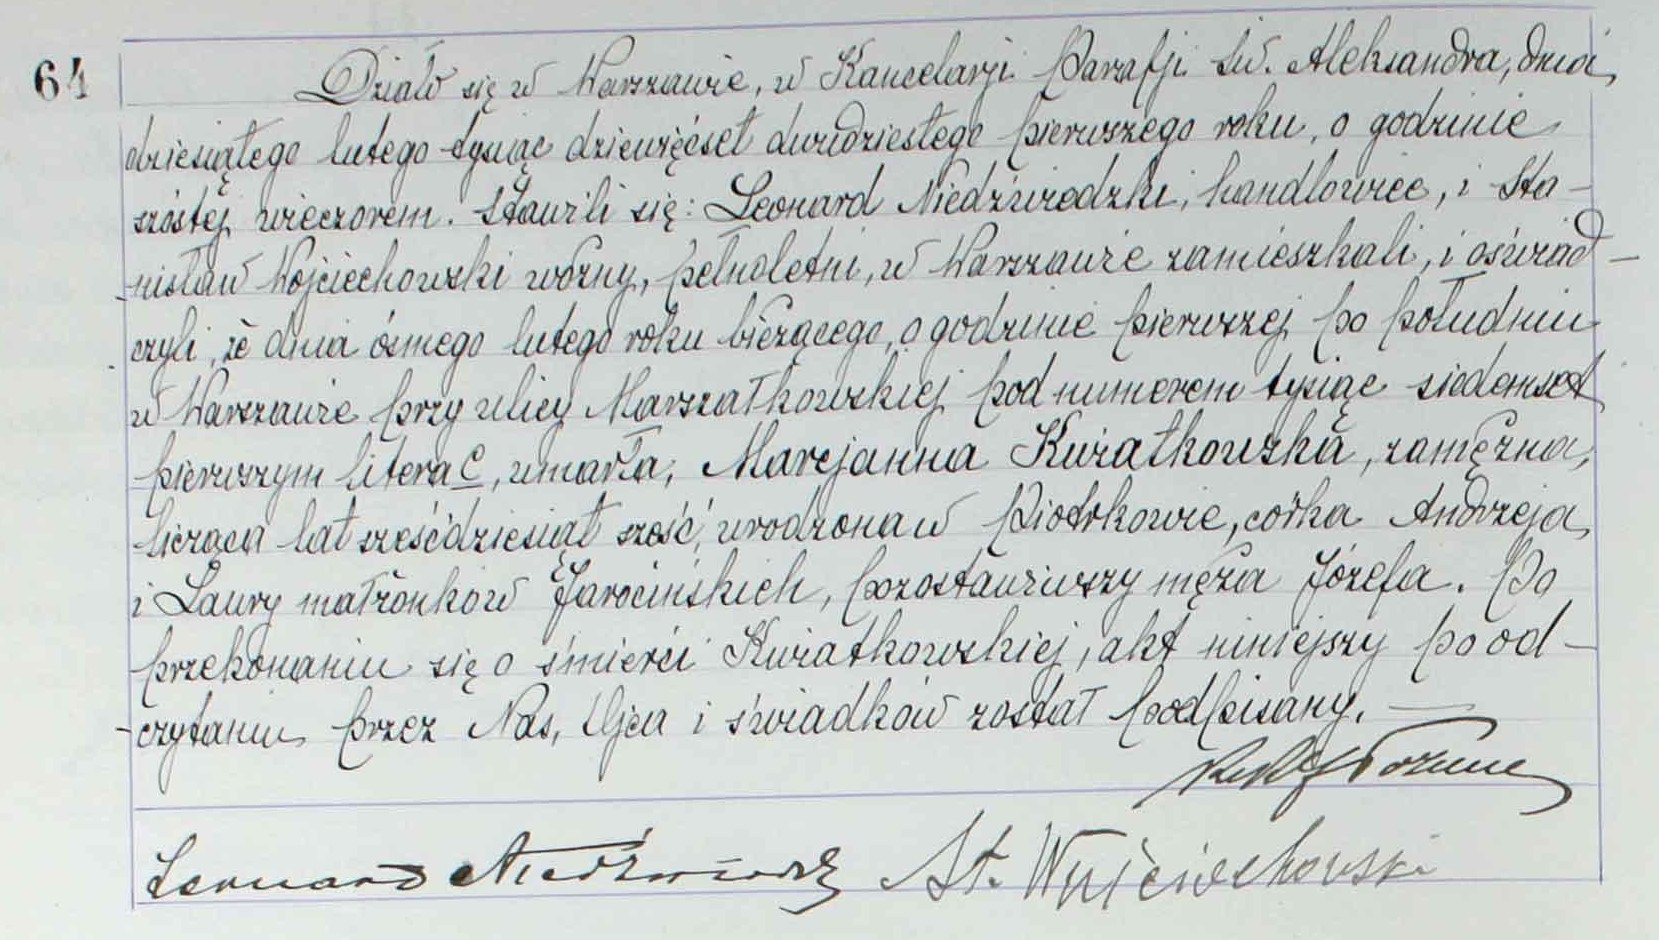 64
Działo się w Warszawie, w Kancelarji Parafji Św. Aleksandra, dnia
dziesiątego lutego tysiąc dziewięćset dwudziestego pierwszego roku, o godzinie
szóstej wieczorem. Stawili się: Leonard Niedźwiedzki, handlowiec, i Sta-
nisław Wojciechowski woźny, pełnoletni, w Warszawie zamieszkali, i oświad-
czyli, że dnia ósmego lutego roku bieżącego, o godzinie pierwszej po południu
w Warszawie przy ulicy Marszałkowskiej pod numerem tysiąc siedemset
pierwszym litera C, umarła, Marcjanna Kwiatkowska, zamężna,
licząca lat sześćdziesiąt sześć, urodzona w Piotrkowie, córka Andrzeja
i Laury małżonków Jarocińskich, pozostawiwszy męża Józefa. Po
przekonaniu się o śmierci Kwiatkowskiej, akt niniejszy po od-
czytaniu przez Nas, i świadków został podpisany.
Leonard Niedźwiedzki St. Wojciechowski